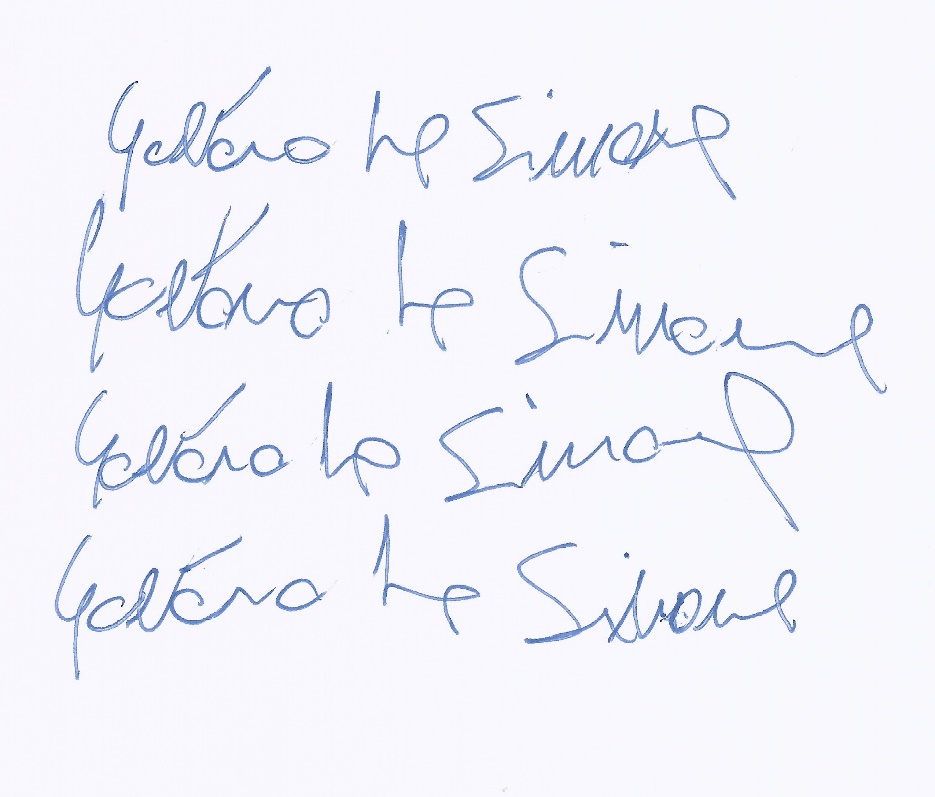 Gaetano De Simone
Gaetano De Simone
Gaetano De Simone
Gaetano De Simone